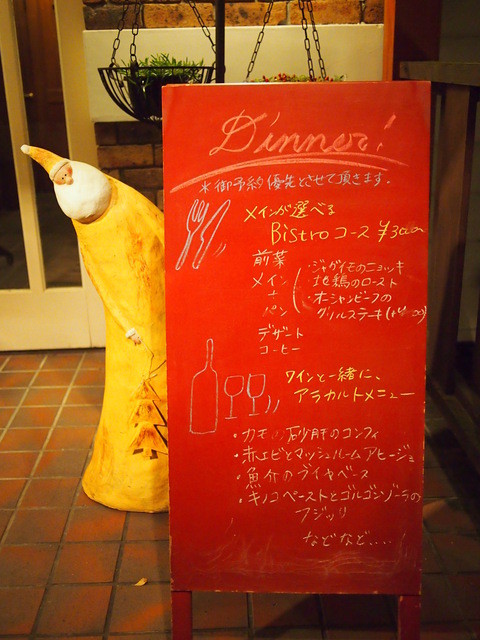 Dinner!
※御予約優先とさせて頂きます。
メインが選べる
Bistroコース ¥3000
前菜
メイン
+
パン
デザート
コーヒー
・ジャガイモのニョッキ
地鶏のロースト
・オーシャンビーフの
グリルステーキ
ワインと一緒に、
アラカルトメニュー
・カモの砂肝のコンフィ
・赤エビとマッシュルームアヒージョ
・魚介のブイヤベース
・キノコペーストとゴルゴンゾーラの
フジッリ
などなど....